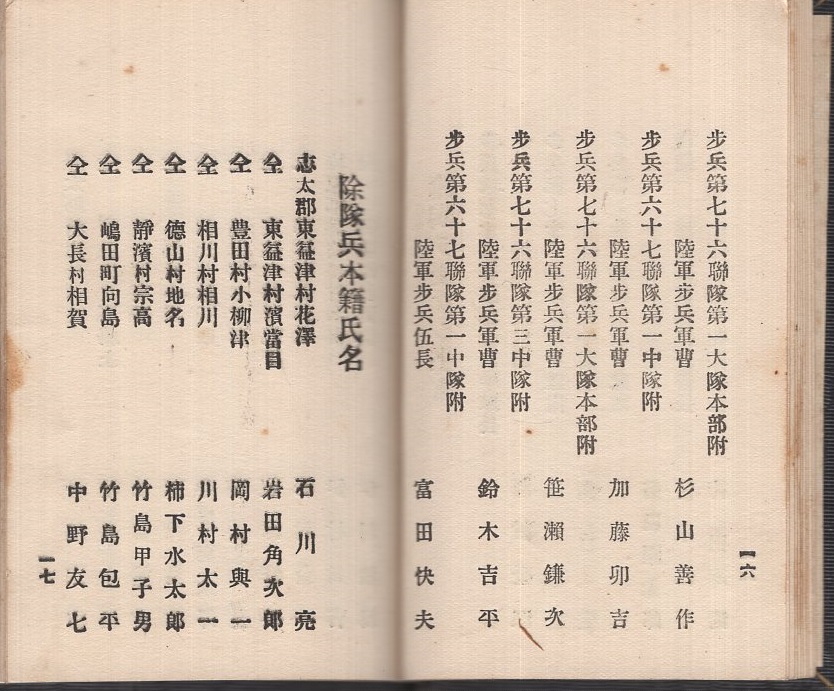 步兵第七十六聯隊第一大隊本部附
陸軍步兵軍曹 杉山善作
步兵第六十七聯隊第一中隊附
陸軍步兵軍曹 加藤卯吉
步兵第七十六聯隊第一大隊本部附
陸軍步兵軍曹 笹瀨鎌次
步兵第七十六聯隊第三中隊附
陸軍步兵軍曹 鈴木吉平
步兵第六十七聯隊第一中隊附
陸軍步兵伍長 富田快夫
一六
除隊兵本籍氏名
志太郡東益津村花澤 石川亮
仝 東益津村濱當目 岩田角次郎
仝 豊田村小柳津 岡村與一
仝 相川村相川 川村太一
仝 德山村地名 柿下水太郎
仝 靜濱村宗高 竹島甲子男
仝 嶋田町向島 竹島包平
仝 大長村相賀 中野友七
一七